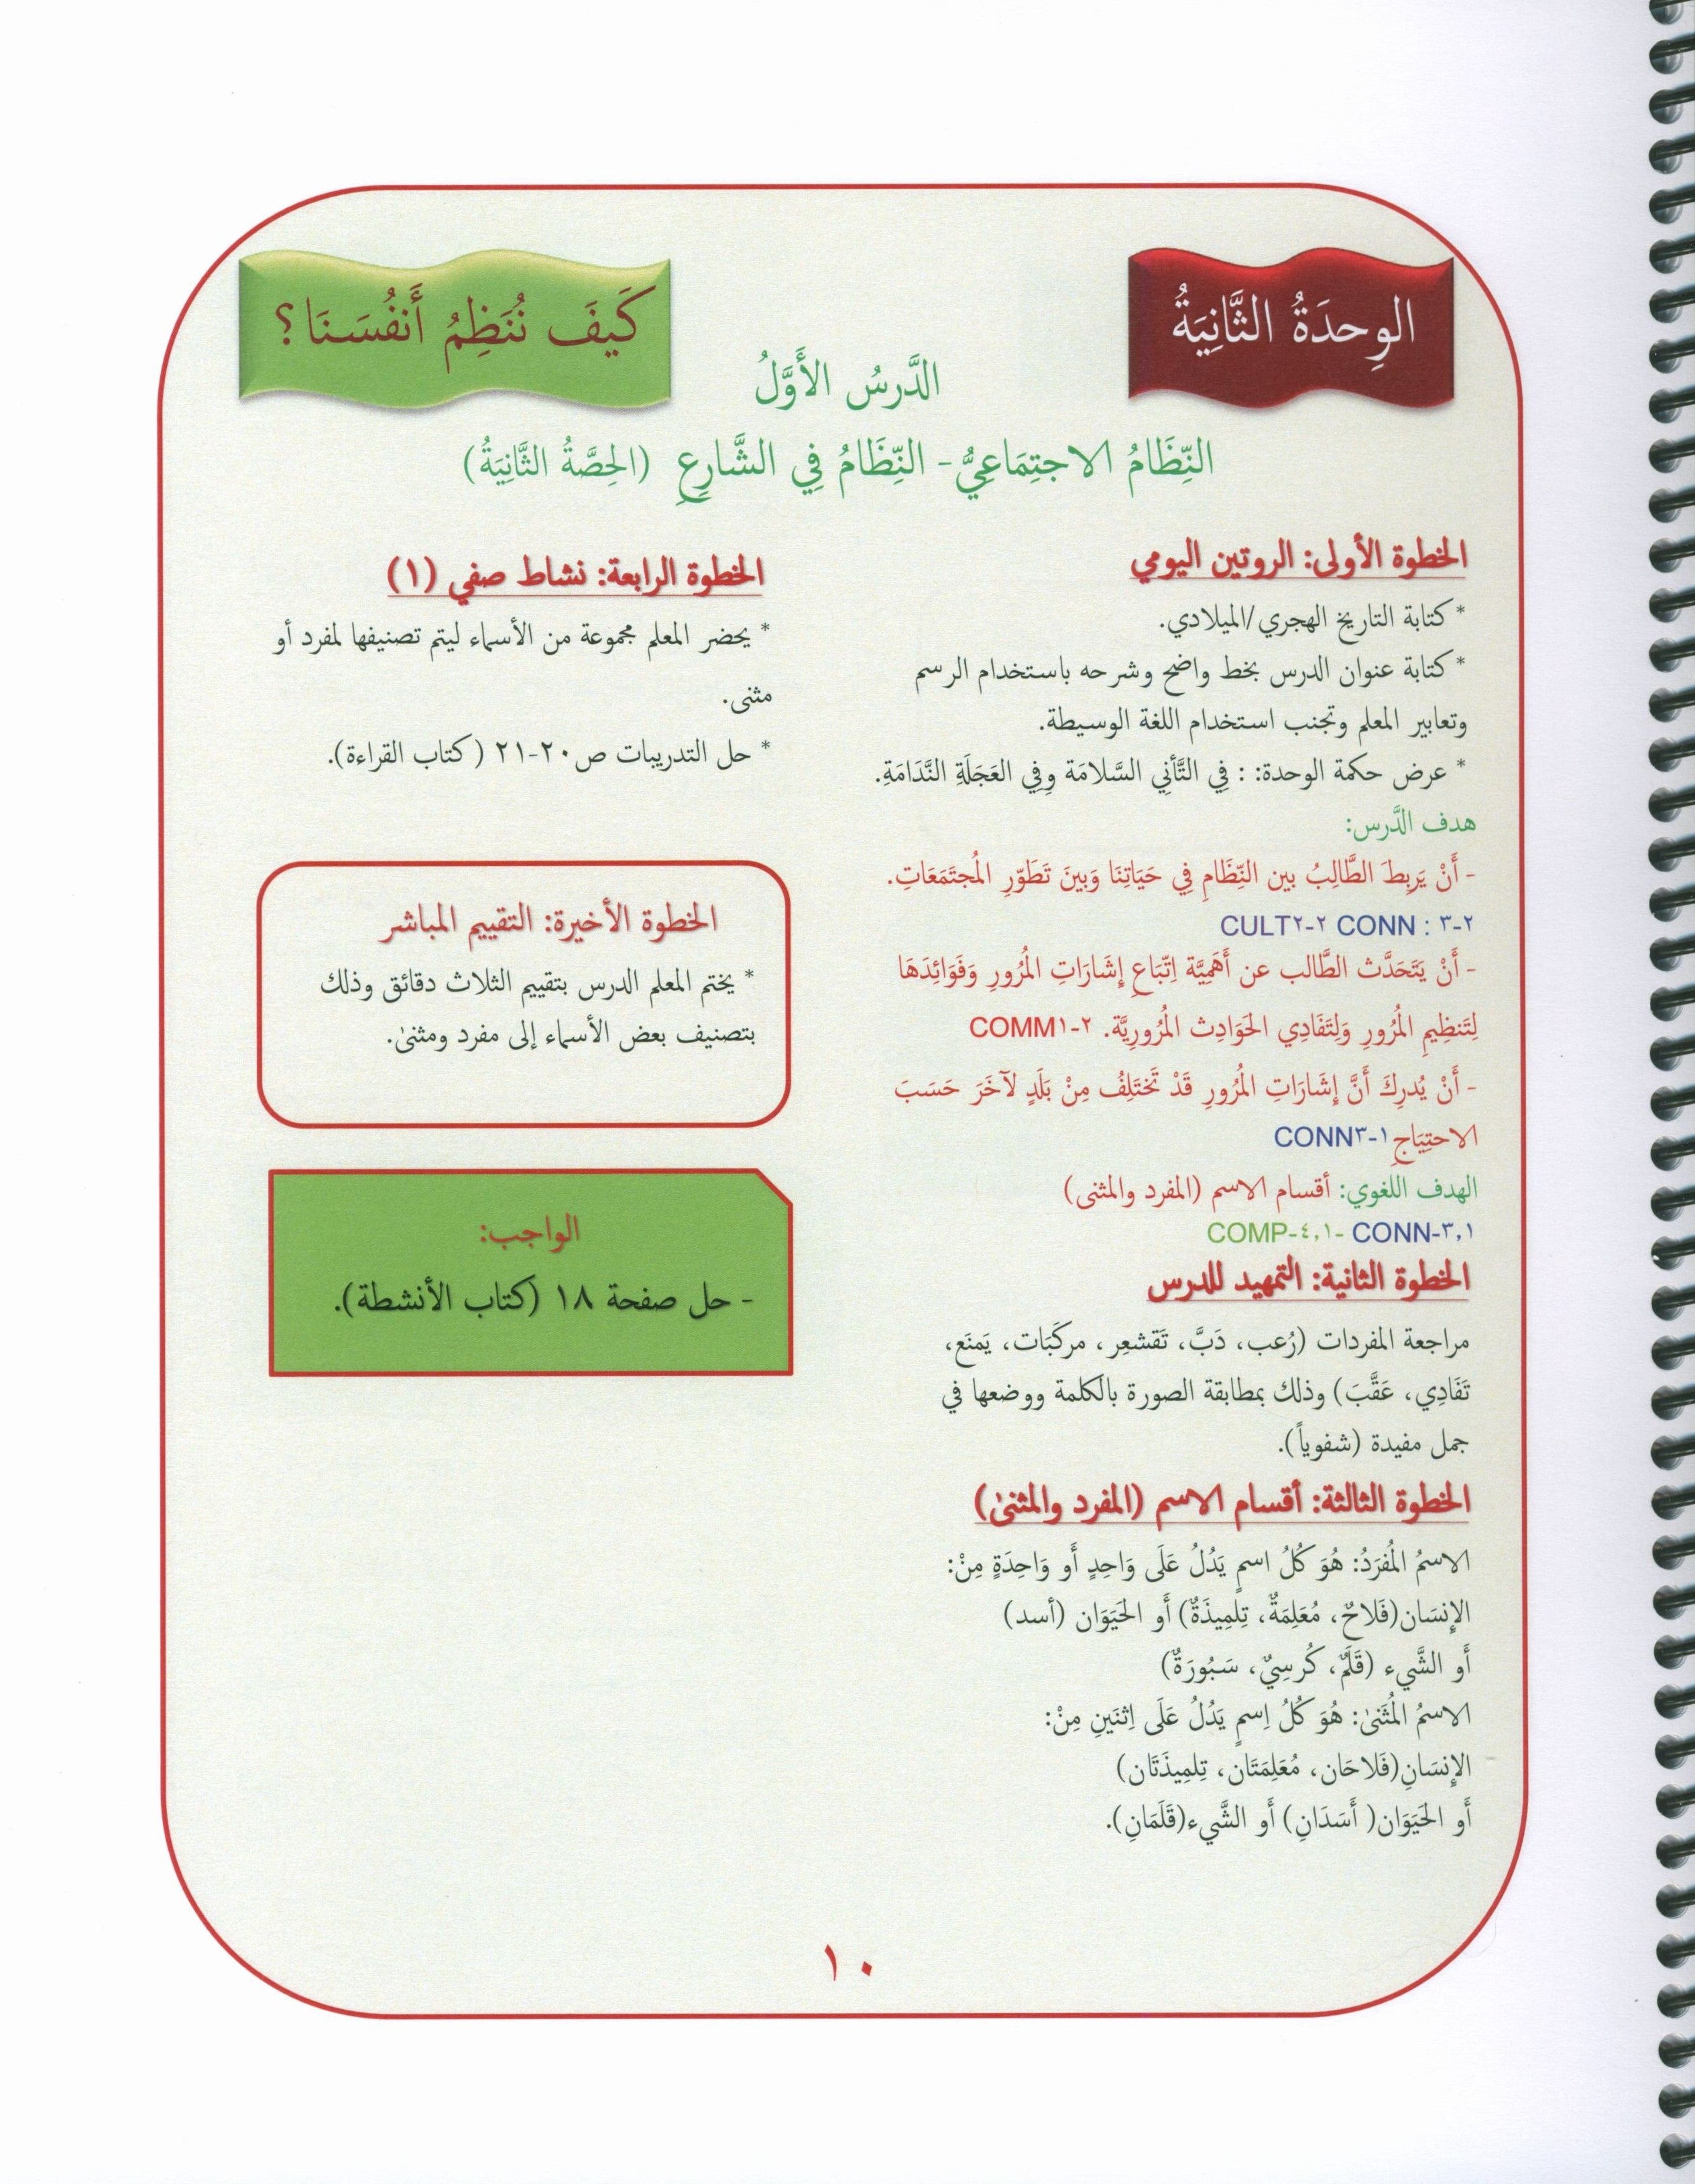 الوِحدَةُ الثَّانِيَةُ
كَيفَ نُنَظِمُ أَنفُسَنَا؟
الدَّرسُ الأَوَّلُ
النِّظَامُ الاجتِمَاعِيُّ - النِّظَامُ فِي الشَّارِعِ (الحِصَّةُ الثَّانِيَةُ)
الخطوة الأولى: الروتين اليومي
* كتابة التاريخ الهجري/الميلادي.
* كتابة عنوان الدرس بخط واضح وشرحه باستخدام الرسم
وتعابير المعلم وتجنب استخدام اللغة الوسيطة.
* عرض حكمة الوحدة: : فِي التَّأنِي السَّلامَة وِفِي العَجَلَةِ النَّدَامَةِ.
هدف الدَّرس:
- أَنْ يَربِطَ الطَّالِبُ بين النِّظَامِ فِي حَيَاتِنَا وَبينَ تَطَوّرِ المُجتَمَعَاتِ.
CULT٢-٢ CONN : ٣-٢
- أَنْ يَتَحَدَّث الطَّالب عن أَهَمِيَّة اِتّبَاعِ إِشَارَاتِ المُرُورِ وَفَوَائِدَهَا
لِتَنظِيمِ المُرُورِ وَلِتَفَادِي الحَوَادِث المُرُورِيَّة. COMM١-٢
- أَنْ يُدرِكَ أَنَّ إِشَارَاتِ المُرُورِ قَدْ تَختَلِفُ مِنْ بَلَدٍ لآخَرَ حَسَبَ
الاحتِيَاجِ CONN٣-١
الهدف اللغوي: أقسام الاسم (المفرد والمثنى)
COMP-٤,١- CONN-٣,١
الخطوة الثانية: التمهيد للدرس
مراجعة المفردات (رُعب، دَبَّ، تَقشعِر، مركَبَات، يَمنَع،
تَفَادِي، عَقَّبَ) وذلك بمطابقة الصورة بالكلمة ووضعها في
جمل مفيدة (شفوياً).
الخطوة الثالثة: أقسام الاسم (المفرد والمثنىٰ)
الاسمُ المُفرَدُ: هُوَ كُلُ اسمٍ يَدُلُ عَلَى وَاحِدٍ أَو وَاحِدَةٍ مِنْ:
الإنسَان(فَلاحٌ، مُعَلِمَةٌ، تِلمِيذَةٌ) أَو الحَيَوَان (أسد)
أَو الشَّيء (قَلَمٌ، كُرسِيٌ، سَبُورَةٌ)
الاسمُ المُثَنىٰ: هُوَ كُلُ اِسمٍ يَدُلُ عَلَى اِثنَينِ مِنْ:
الإنسَانِ(فَلاحَان، مُعَلِمَتَان، تِلمِيذَتَان)
أَو الحَيَوَان( أَسَدَانِ) أَو الشَّيء(قَلَمَانِ).
الخطوة الرابعة: نشاط صفي (١)
* يحضر المعلم مجموعة من الأسماء ليتم تصنيفها لمفرد أو
مثنى.
* حل التدريبات ص٢٠-٢١ (كتاب القراءة).
الخطوة الأخيرة: التقييم المباشر
* يختم المعلم الدرس بتقييم الثلاث دقائق وذلك
بتصنيف بعض الأسماء إلى مفرد ومثنىٰ.
الواجب:
- حل صفحة ١٨ (كتاب الأنشطة).
١٠